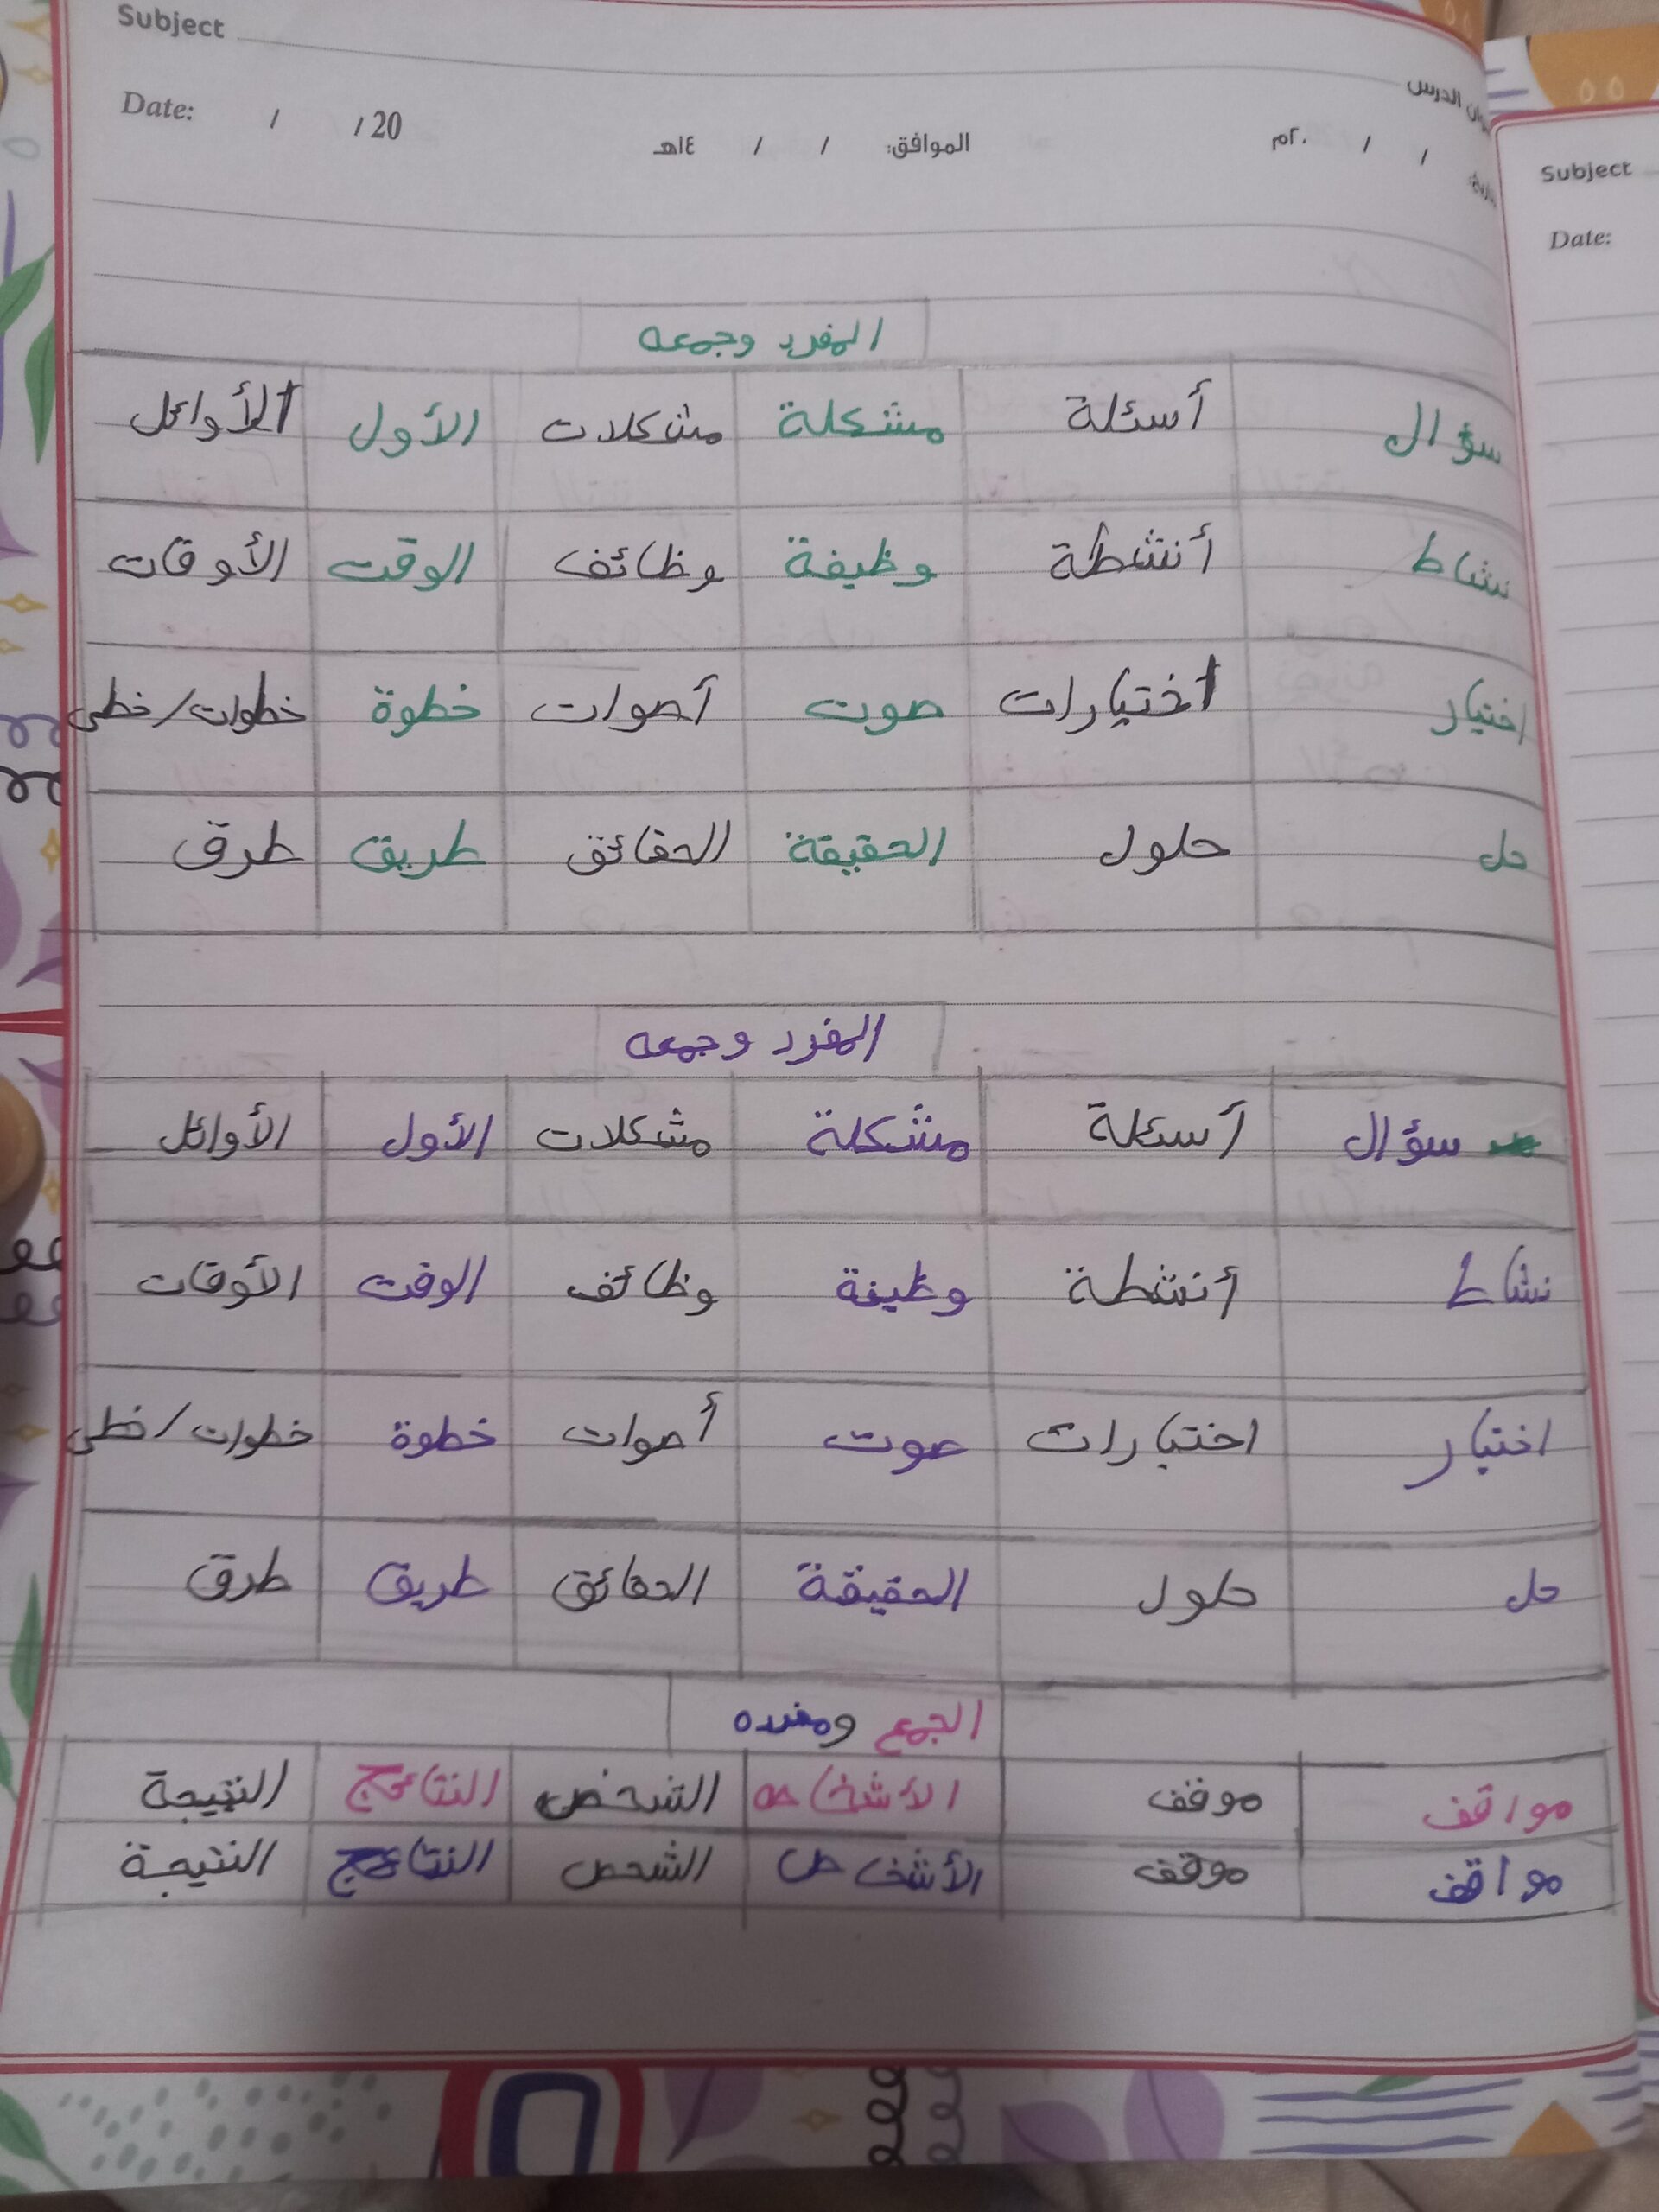 Subject
الدرس
Date: / / 20
الموافق: / / ١٤هـ
/ / ٢٠م
Subject
Date:
المفرد وجمعه
سؤال أسئلة مشكلة مشكلات الأول الأوائل
نشاط أنشطة وظيفة وظائف الوقت الأوقات
اختيار اختيارات صوت أصوات خطوة خطوات/خطى
حل حلول الحقيقة الحقائق طريق طرق
المفرد وجمعه
سؤال أسئلة مشكلة مشكلات الأول الأوائل
نشاط أنشطة وظيفة وظائف الوقت الأوقات
اختبار اختبارات صوت أصوات خطوة خطوات/خطى
حل حلول الحقيقة الحقائق طريق طرق
الجمع ومفرده
مواقف موقف الأشخاص الشخص النتائج النتيجة
مواقف موقف الأشخاص الشخص النتائج النتيجة